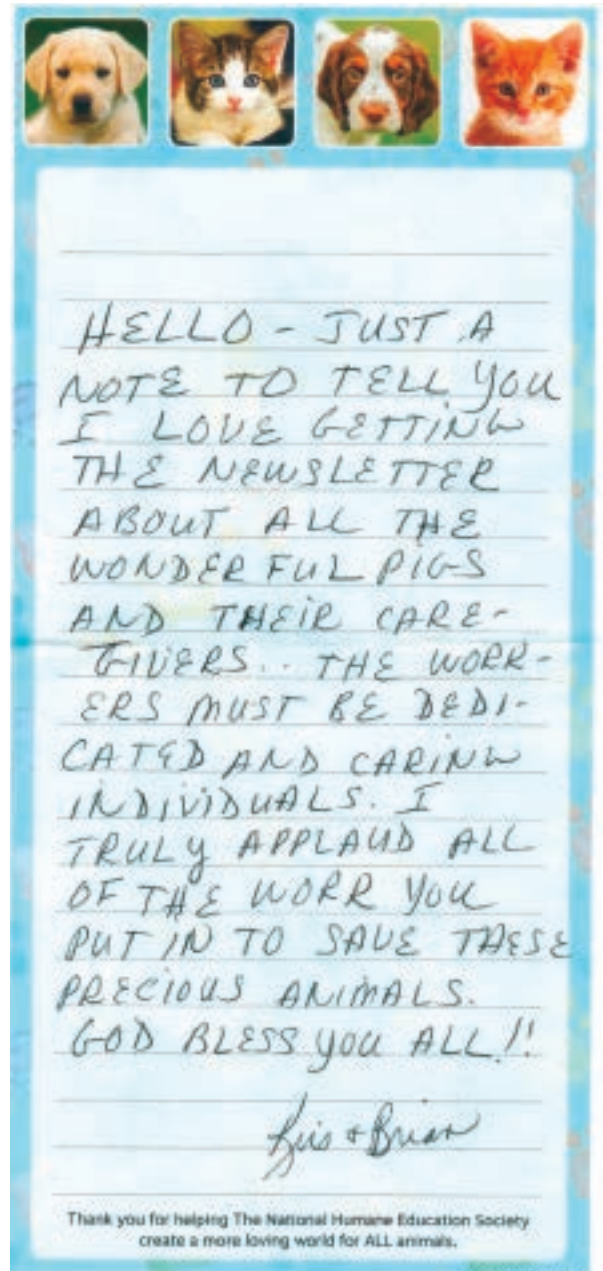 HELLO - JUST A
NOTE TO TELL YOU
I LOVE GETTING
THE NEWSLETTER
ABOUT ALL THE
WONDERFUL PIGS
AND THEIR CARE-
GIVERS.. THE WORK-
ERS MUST BE DEDI-
CATED AND CARING
INDIVIDUALS. I
TRULY APPLAUD ALL
OF THE WORK YOU
PUT IN TO SAVE THESE
PRECIOUS ANIMALS.
GOD BLESS YOU ALL!!
+ Brian
Thank you for helping The National Humane Education Society
create a more loving world for ALL animals.